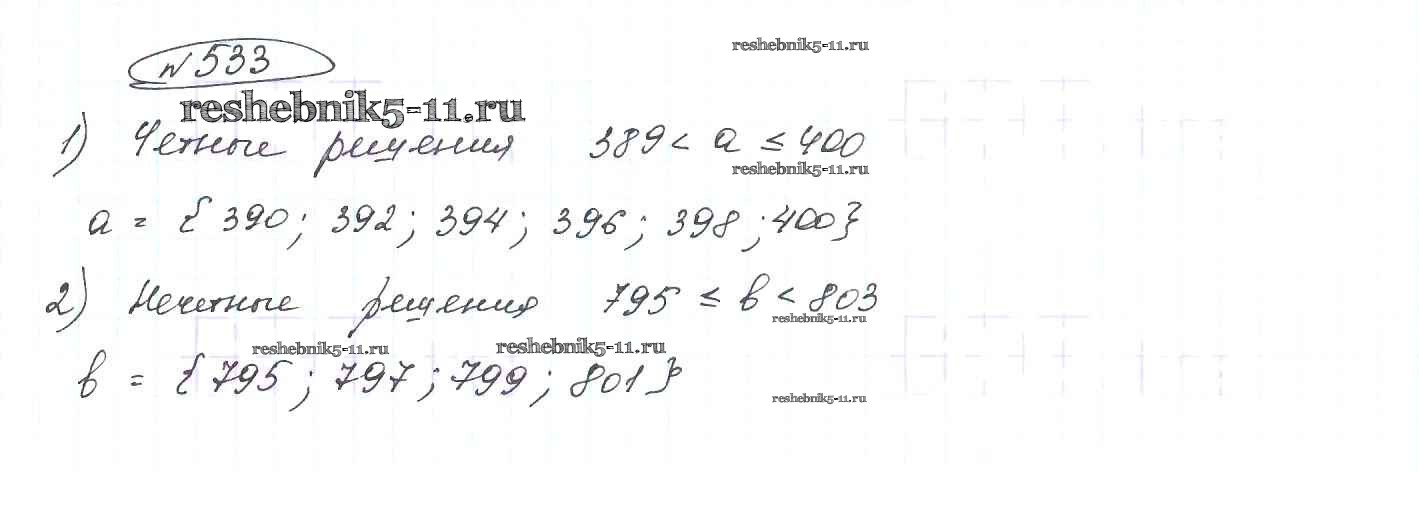 reshebnik5-11.ru
№533
reshebnik5-11.ru
1) Четные решения 389 < a ≤ 400
reshebnik5-11.ru
a = { 390; 392; 394; 396; 398; 400}
2) Нечетные решения 795 ≤ в < 803
reshebnik5-11.ru
reshebnik5-11.ru reshebnik5-11.ru
в = {795; 797; 799; 801}
reshebnik5-11.ru